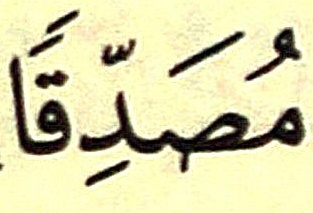 مُصَدِّقًا